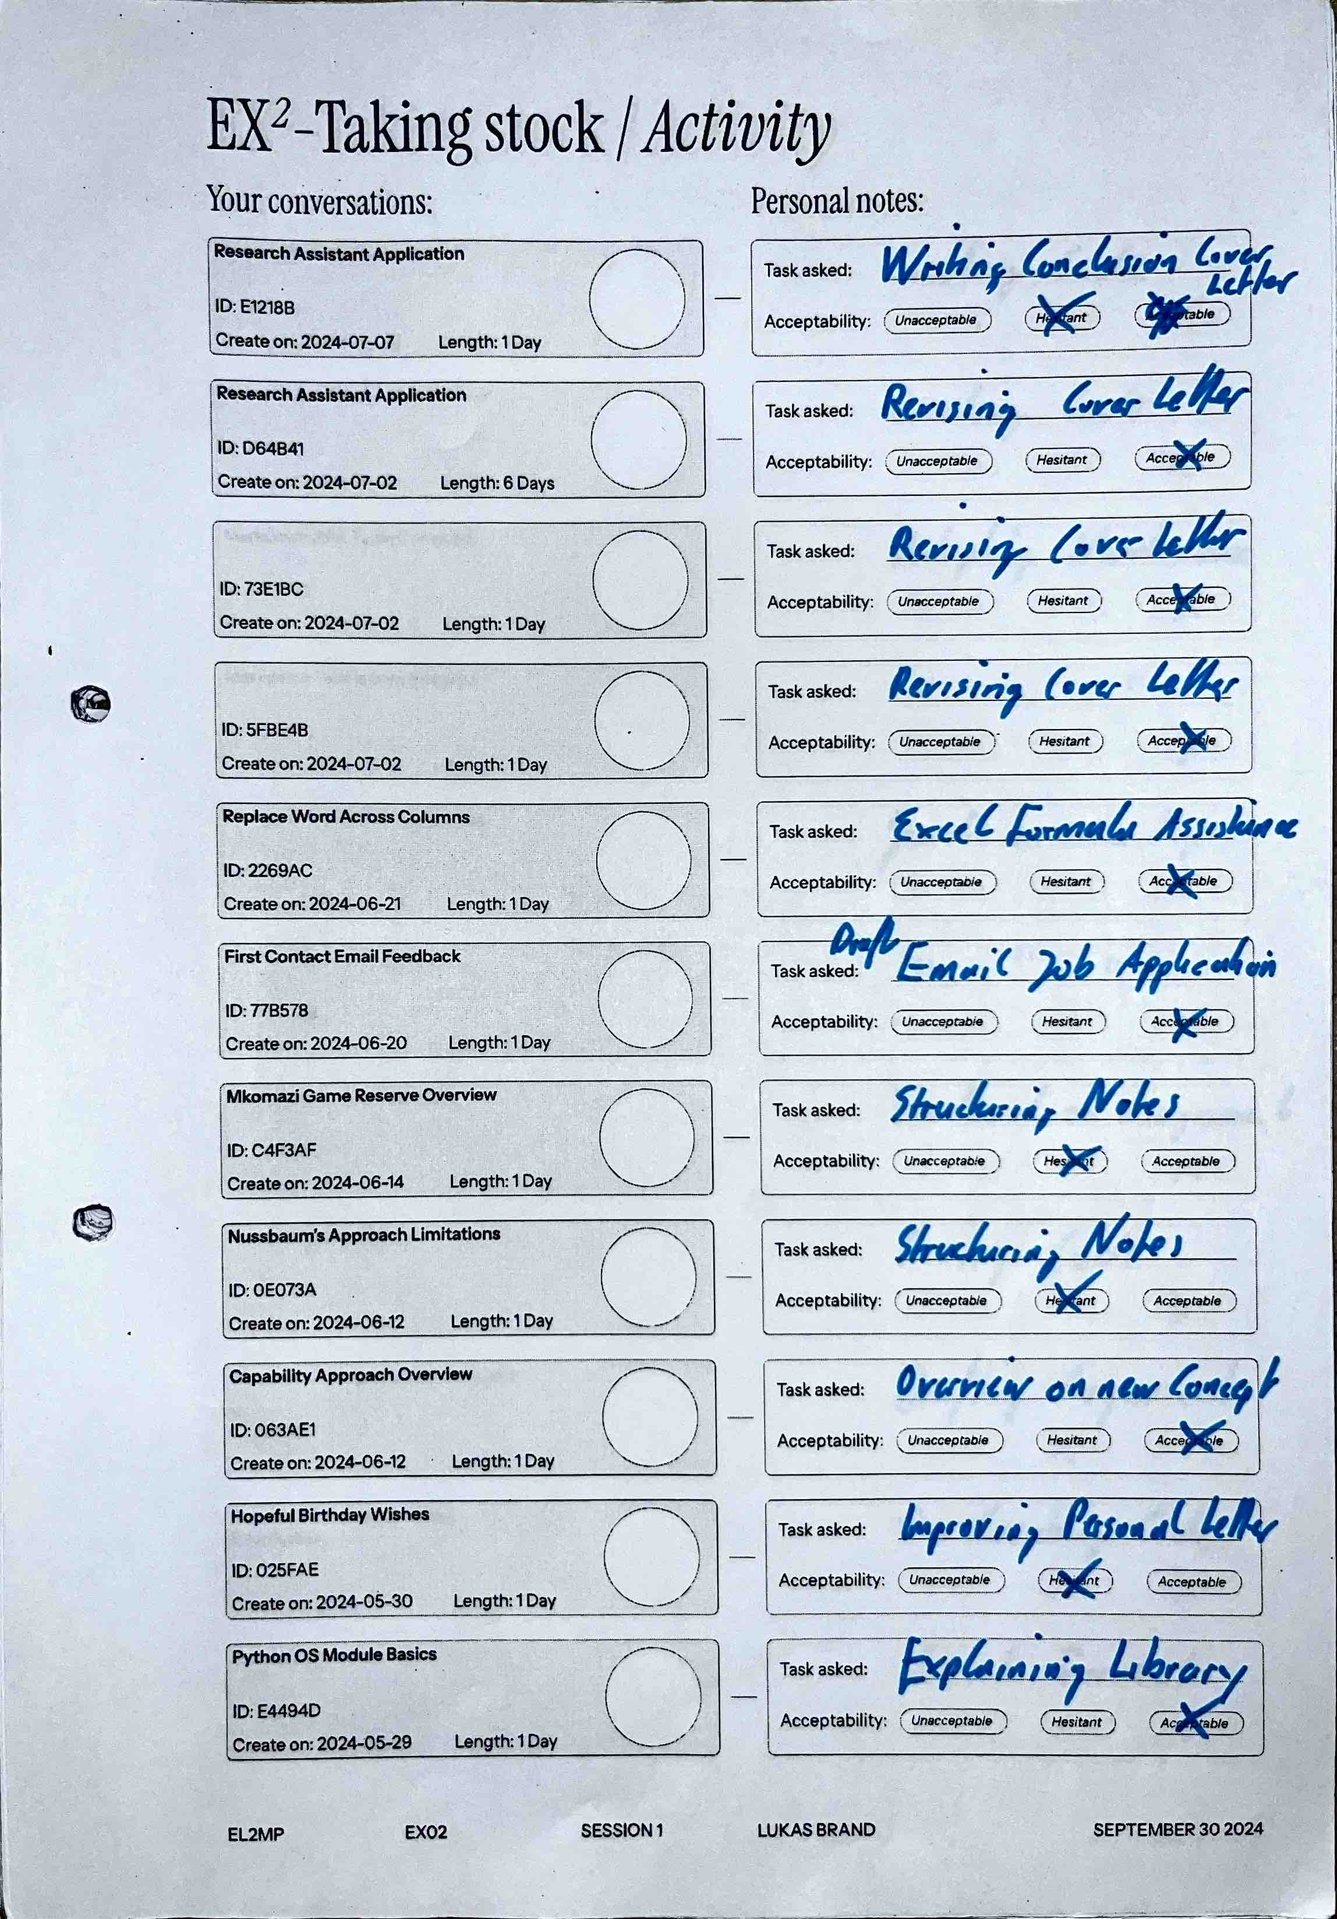 EX²-Taking stock / Activity
Your conversations:
Personal notes:
Research Assistant Application
ID: E1218B
Create on: 2024-07-07 Length: 1 Day
Task asked: Writing Conclusion Cover Letter
Acceptability: Unacceptable Hesitant Acceptable
Research Assistant Application
ID: D64B41
Create on: 2024-07-02 Length: 6 Days
Task asked: Revising Cover Letter
Acceptability: Unacceptable Hesitant Acceptable
ID: 73E1BC
Create on: 2024-07-02 Length: 1 Day
Task asked: Revising Cover Letter
Acceptability: Unacceptable Hesitant Acceptable
ID: 5FBE4B
Create on: 2024-07-02 Length: 1 Day
Task asked: Revising Cover Letter
Acceptability: Unacceptable Hesitant Acceptable
Replace Word Across Columns
ID: 2269AC
Create on: 2024-06-21 Length: 1 Day
Task asked: Excel Formula Assistance
Acceptability: Unacceptable Hesitant Acceptable
First Contact Email Feedback
ID: 77B578
Create on: 2024-06-20 Length: 1 Day
Task asked: Draft Email Job Application
Acceptability: Unacceptable Hesitant Acceptable
Mkomazi Game Reserve Overview
ID: C4F3AF
Create on: 2024-06-14 Length: 1 Day
Task asked: Structuring Notes
Acceptability: Unacceptable Hesitant Acceptable
Nussbaum's Approach Limitations
ID: 0E073A
Create on: 2024-06-12 Length: 1 Day
Task asked: Structuring Notes
Acceptability: Unacceptable Hesitant Acceptable
Capability Approach Overview
ID: 063AE1
Create on: 2024-06-12 Length: 1 Day
Task asked: Overview on new Concept
Acceptability: Unacceptable Hesitant Acceptable
Hopeful Birthday Wishes
ID: 025FAE
Create on: 2024-05-30 Length: 1 Day
Task asked: Improving Personal Letter
Acceptability: Unacceptable Hesitant Acceptable
Python OS Module Basics
ID: E4494D
Create on: 2024-05-29 Length: 1 Day
Task asked: Explaining Library
Acceptability: Unacceptable Hesitant Acceptable
EL2MP EX02 SESSION 1 LUKAS BRAND SEPTEMBER 30 2024